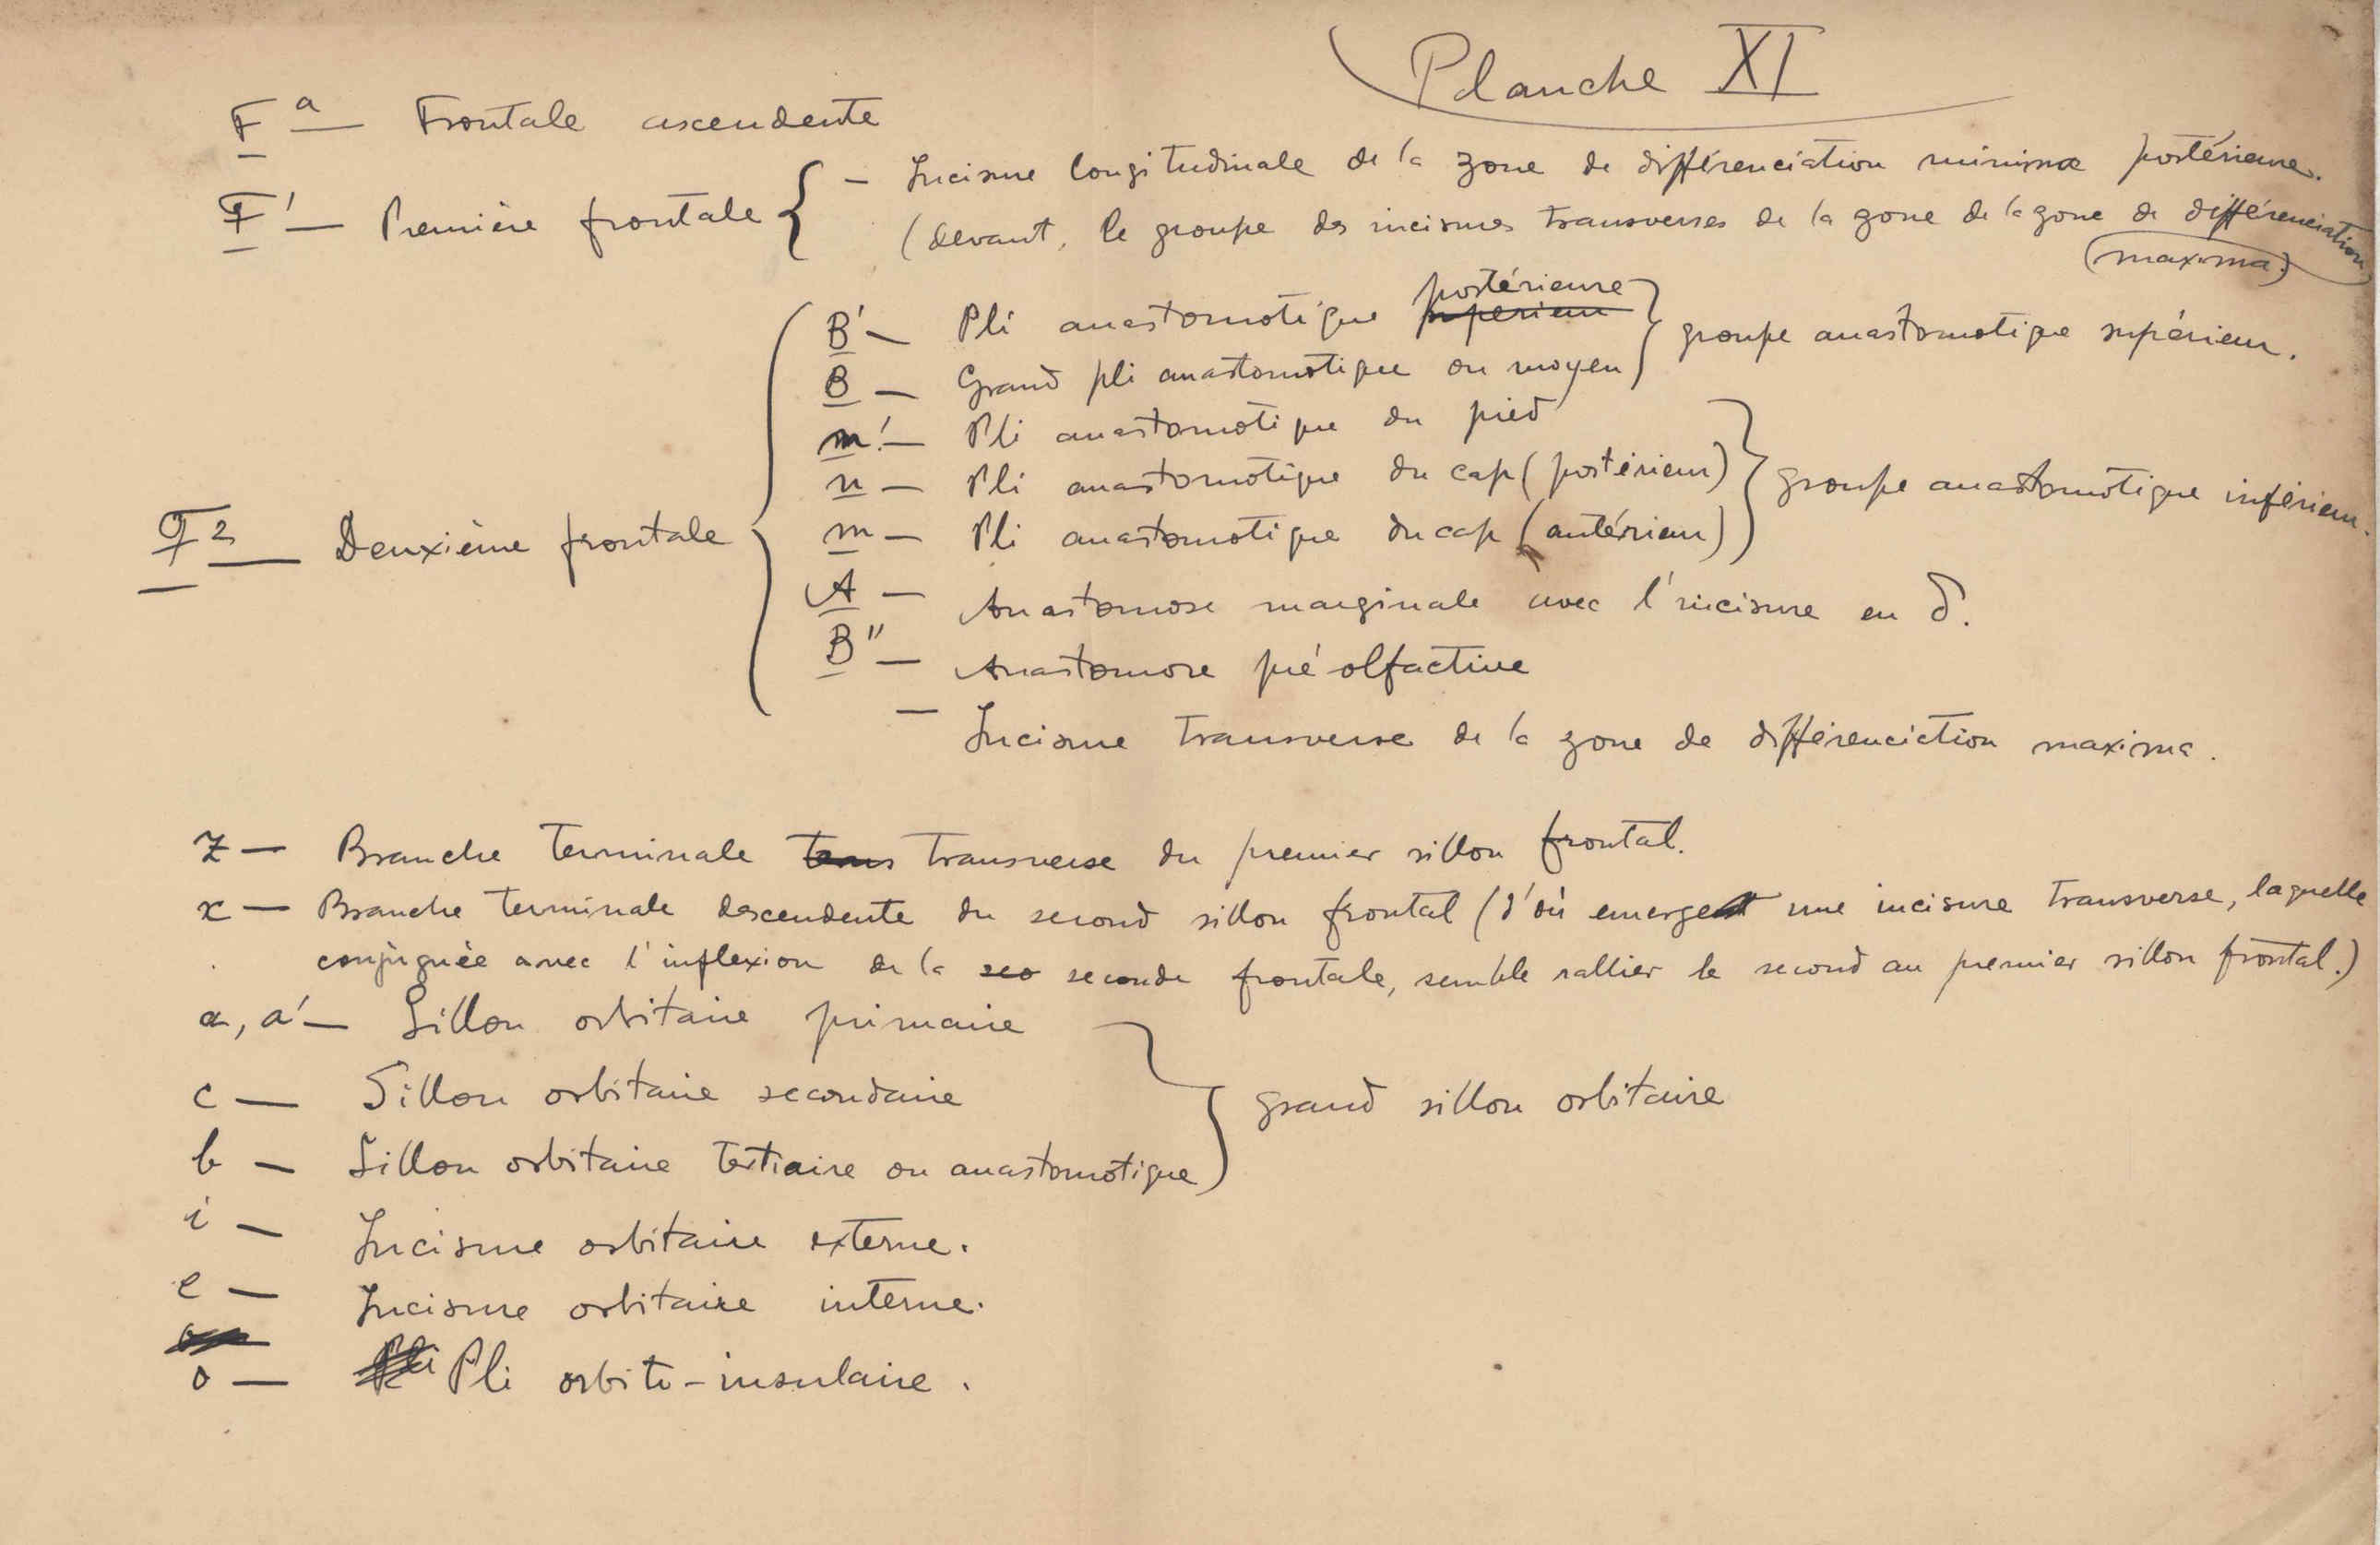 Planche XI
F a — Frontale ascendente
F' — Première frontale { — Incisure longitudinale de la zone de différenciation minima postérieure.
(devant, le groupe des incisures transverses de la zone de la zone de différenciation
maxima.)
postérieure
B' — Pli anastomotique superieur } groupe anastomotique supérieur.
B — Grand pli anastomotique ou moyen
m' — Pli anastomotique du pied
n — Pli anastomotique du cap (postérieur) } groupe anastomotique inférieur.
F2 — Deuxième frontale { m — Pli anastomotique du cap (antérieur)
A — Anastomose marginale avec l'incisure en δ.
B" — Anastomose pré olfactive
— Incisure transverse de la zone de différenciation maxima.
z — Branche terminale trans transverse du premier sillon frontal.
x — Branche terminale descendente du second sillon frontal (d'où emerge une incisure transverse, laquelle
conjuguée avec l'inflexion de la seco seconde frontale, semble rallier le second au premier sillon frontal.)
a, a' — Sillon orbitaire primaire
c — Sillon orbitaire secondaire } grand sillon orbitaire
b — Sillon orbitaire tertiaire ou anastomotique
i — Incisure orbitaire externe.
e — Incisure orbitaire interne.
o — Pli Pli orbito-insulaire.